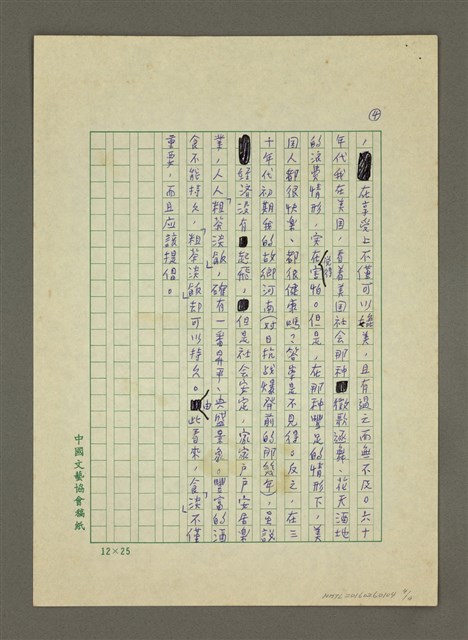 ④
，在享受上不僅可以媲美，且有過之而無不及。六十
年代我在美国，看着美国社会那种徵歌逐舞、花天酒地
的浪費情形，实在覺得害怕。但是，在那种豐足的情形下，美
国人都很快樂、都很健康嗎？答案是不見得。反之，在三
十年代初期我的故鄉河南（对日抗战爆發前的那幾年），虽說
經濟没有起飛，但是社会安定，家家戶戶安居樂
業，人人「粗茶淡飯」，確有一番昇平、興盛景象。豐富的酒
食不能持久，「粗茶淡飯」却可以持久。由此看來，「食淡」不僅
重要，而且应該提倡。
中國文藝協會稿紙
12×25